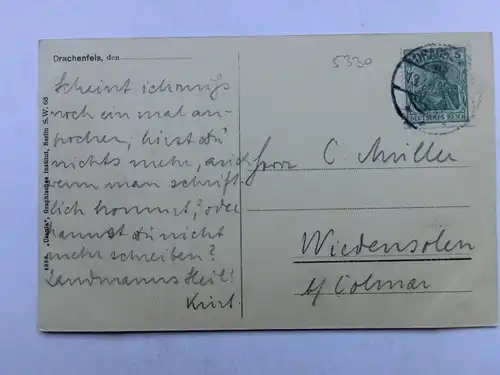 Drachenfels, den
5330
DEUTSCHES REICH
Scheint ich muß
noch ein mal an-
pochen, hörst du
nichts mehr, auch
wenn man schrift-
lich kommt, oder
kannst du nicht
mehr schreiben?
Landmanns Heil!
Kurt.
Herr C Müller
Wiedensolen
b/ Colmar
Graphisches Institut, Berlin S.W. 68